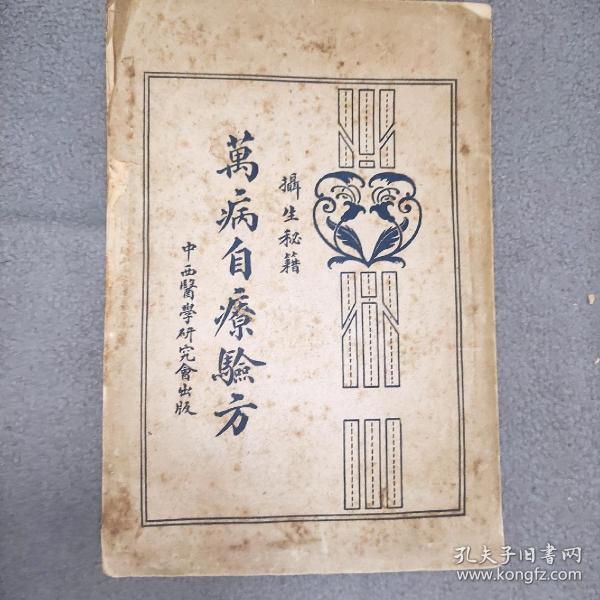 攝生秘籍
萬病自療驗方
中西醫學研究會出版
孔夫子旧書网
www.kongfz.com